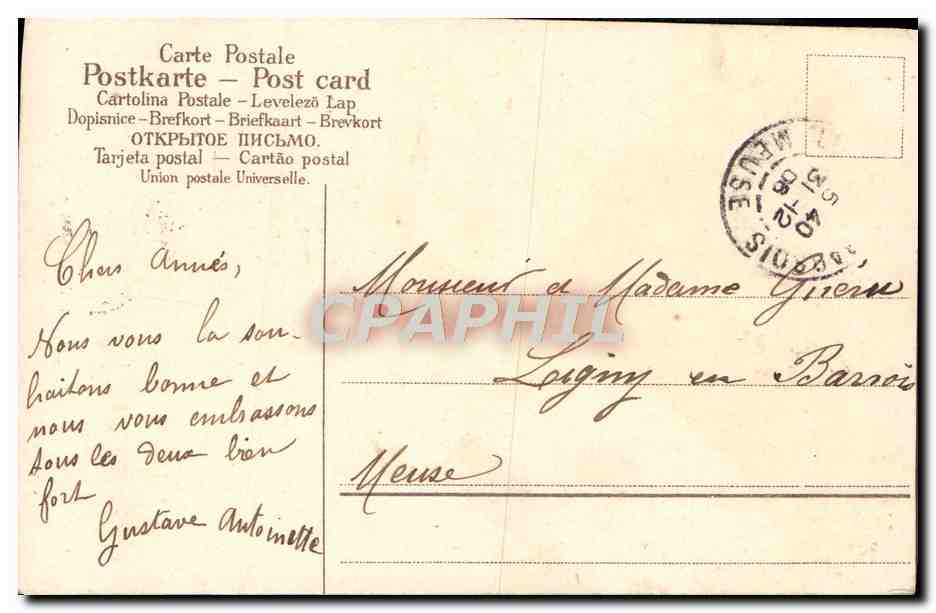 Carte Postale
Postkarte – Post card
Cartolina Postale – Levelező Lap
Dopisnice – Brefkort – Briefkaart – Brevkort
ОТКРЫТОЕ ПИСЬМО.
Tarjeta postal — Cartão postal
Union postale Universelle.
MEUSE
5 40
31 -12
06
Chers Amies,
Nous vous la sou-
haitons bonne et
nous vous embrassons
tous les deux bien
fort
Gustave Antoinette
Monsieur et Madame
Ligny en Barrois
Meuse
CPAPHIL